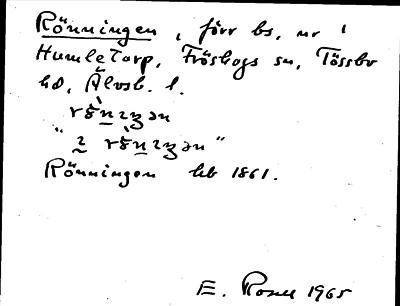 Rönningen, förr bs, nr 1
Humletorp, Fröskogs sn, Tössbo
hd, Älvsb. l.
Rönningen hb 1861.
E. Rosell 1965